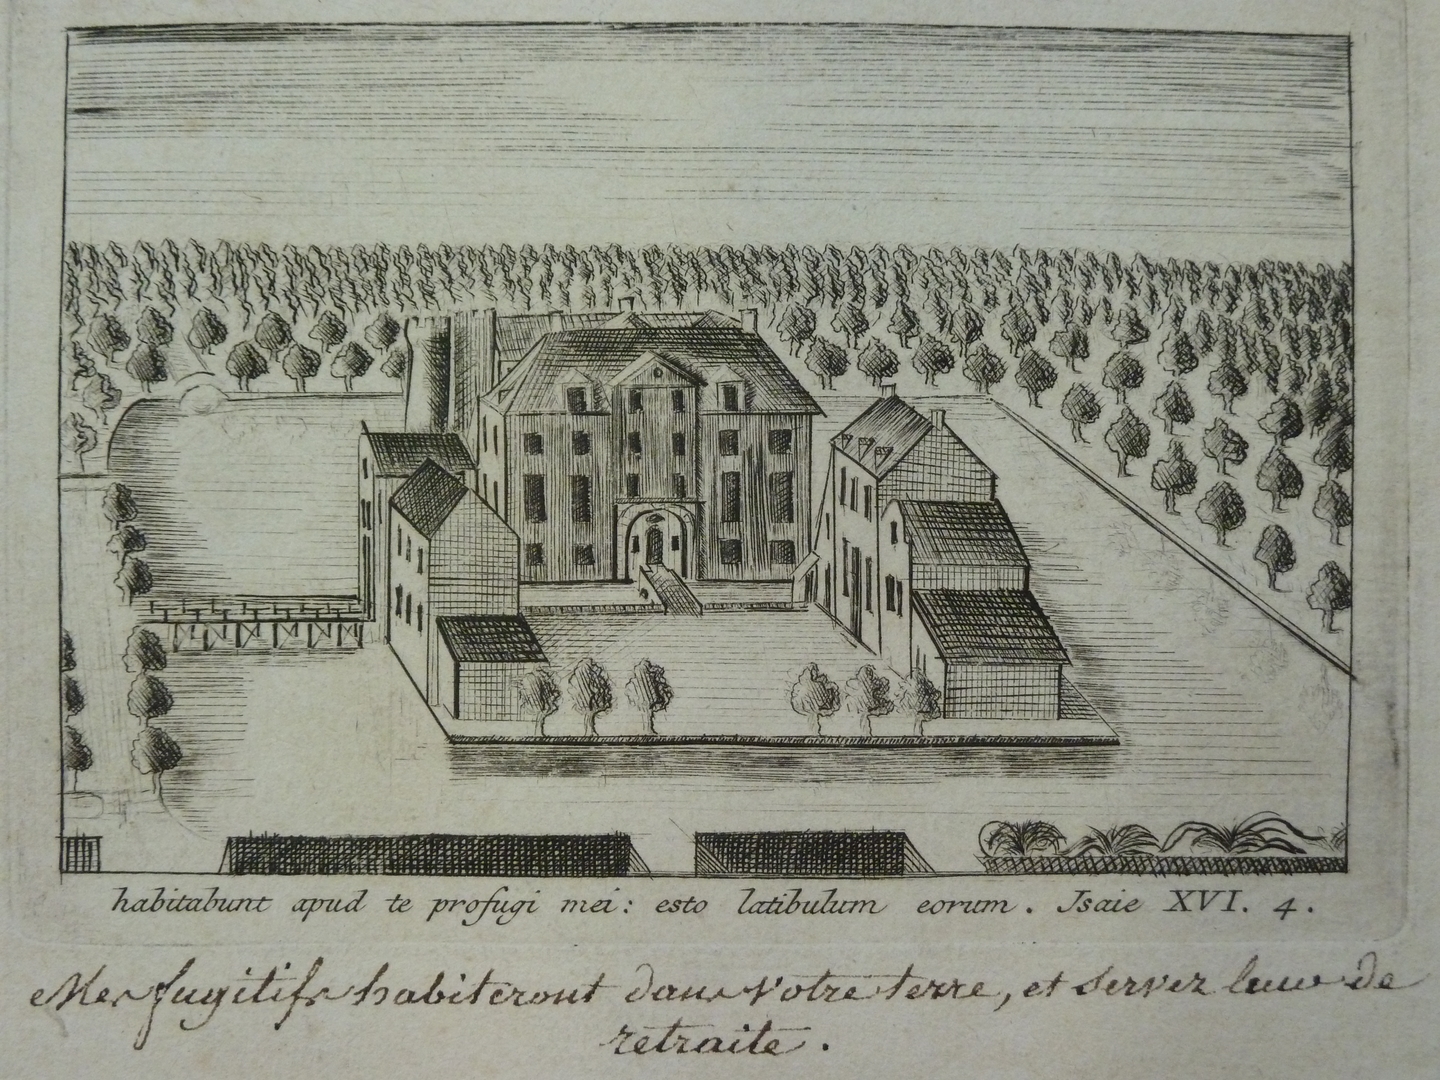 habitabunt apud te profugi mei: esto latibulum eorum. Jsaie XVI. 4.
Mes fugitifs habiteront dans votre terre, et servez leur de
retraite.